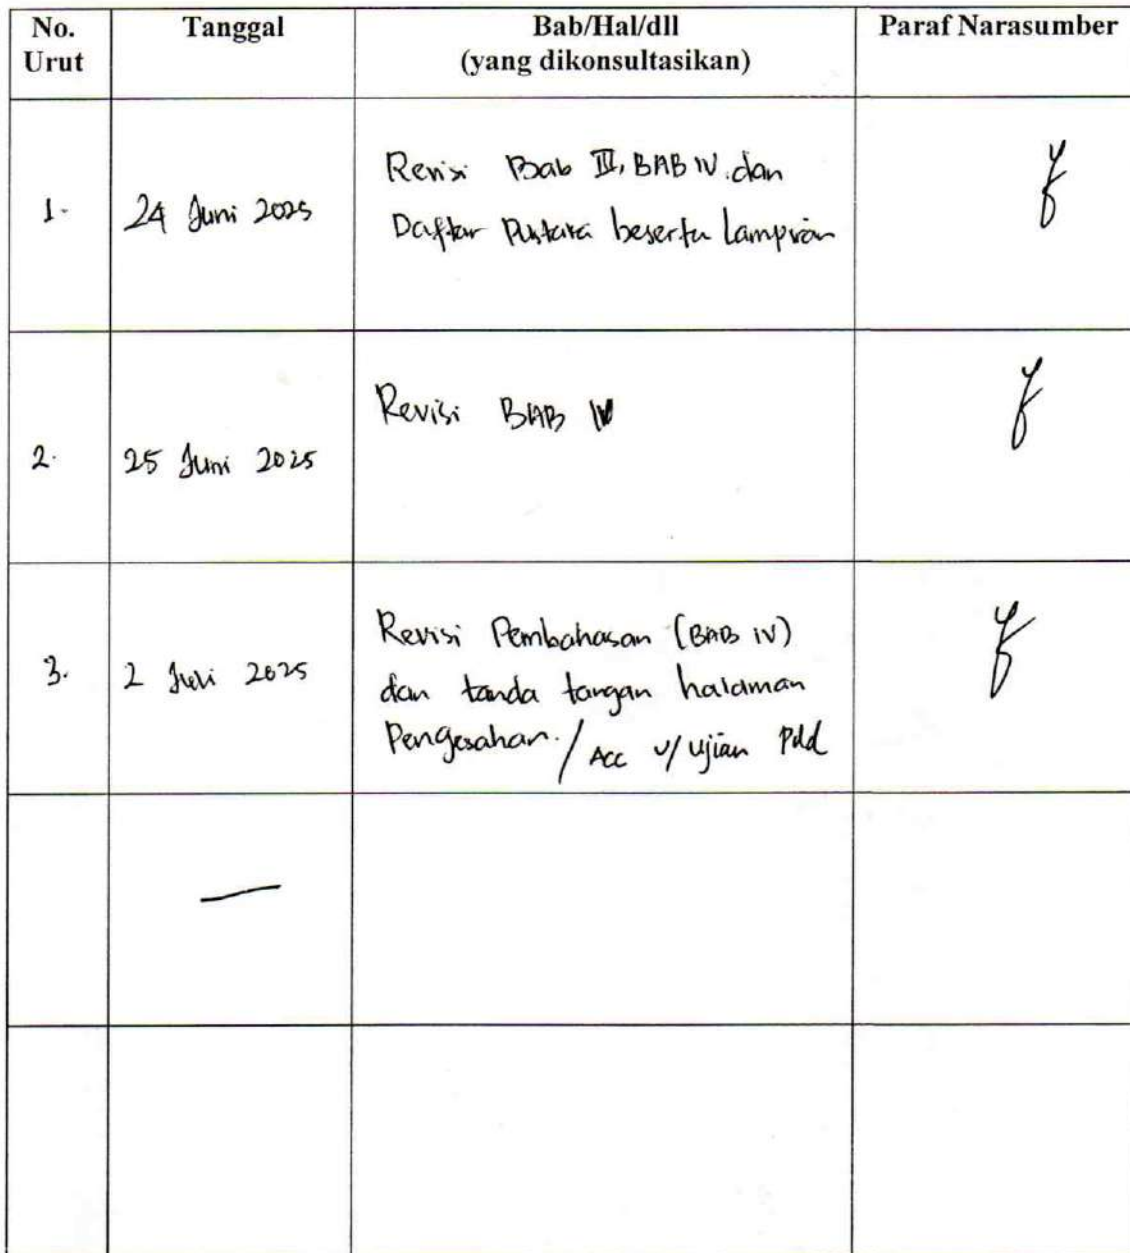 No. Urut Tanggal Bab/Hal/dll (yang dikonsultasikan) Paraf Narasumber
1. 24 Juni 2025 Revisi Bab III, BAB IV dan
Daftar Pustaka beserta Lampiran
2. 25 Juni 2025 Revisi BAB IV
3. 2 Juli 2025 Revisi Pembahasan (BAB IV)
dan tanda tangan halaman
Pengesahan. / Acc u/ ujian